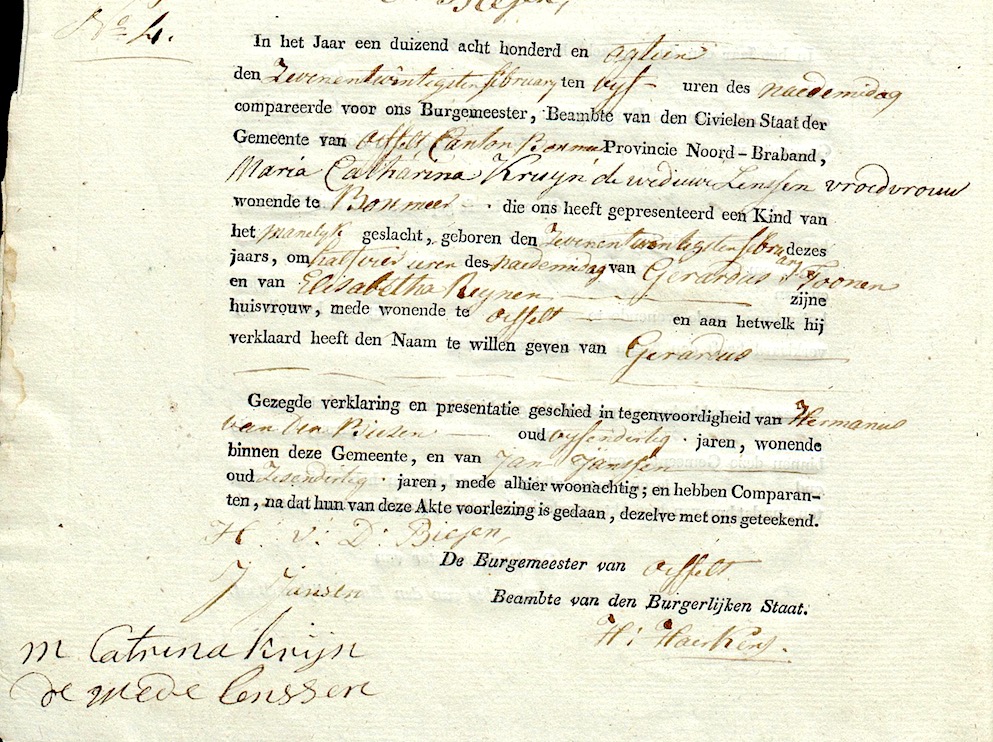 Biesen,
No 4.
In het Jaar een duizend acht honderd en agtien
den Zevenentwintigsten february ten vyf uren des naedemidag
compareerde voor ons Burgemeester, Beambte van den Civielen Staat der
Gemeente van Oeffelt Canton Boxmeer Provincie Noord-Braband,
Maria Catharina Kruyn de weduwe Lenssen vroedvrouw
wonende te Boxmeer . die ons heeft gepresenteerd een Kind van
het manelyk geslacht, geboren den Zevenentwintigsten febru dezes
ary
jaars, om half vier uren des naedemidag van Gerardus Toonen
en van Elisabetha Reynen zijne
huisvrouw, mede wonende te Oeffelt en aan hetwelk hij
verklaard heeft den Naam te willen geven van Gerardus
Gezegde verklaring en presentatie geschied in tegenwoordigheid van Hermanus
van den Biesen oud vyfendertig jaren, wonende
binnen deze Gemeente, en van Jan Janssen
oud Zesendertig jaren, mede alhier woonachtig; en hebben Comparan-
ten, na dat hun van deze Akte voorlezing is gedaan, dezelve met ons geteekend.
H: V: D: Biesen,
De Burgemeester van Oeffelt
J Jansen
Beambte van den Burgerlijken Staat.
H:
m Catrina krijn
de wede lenssen